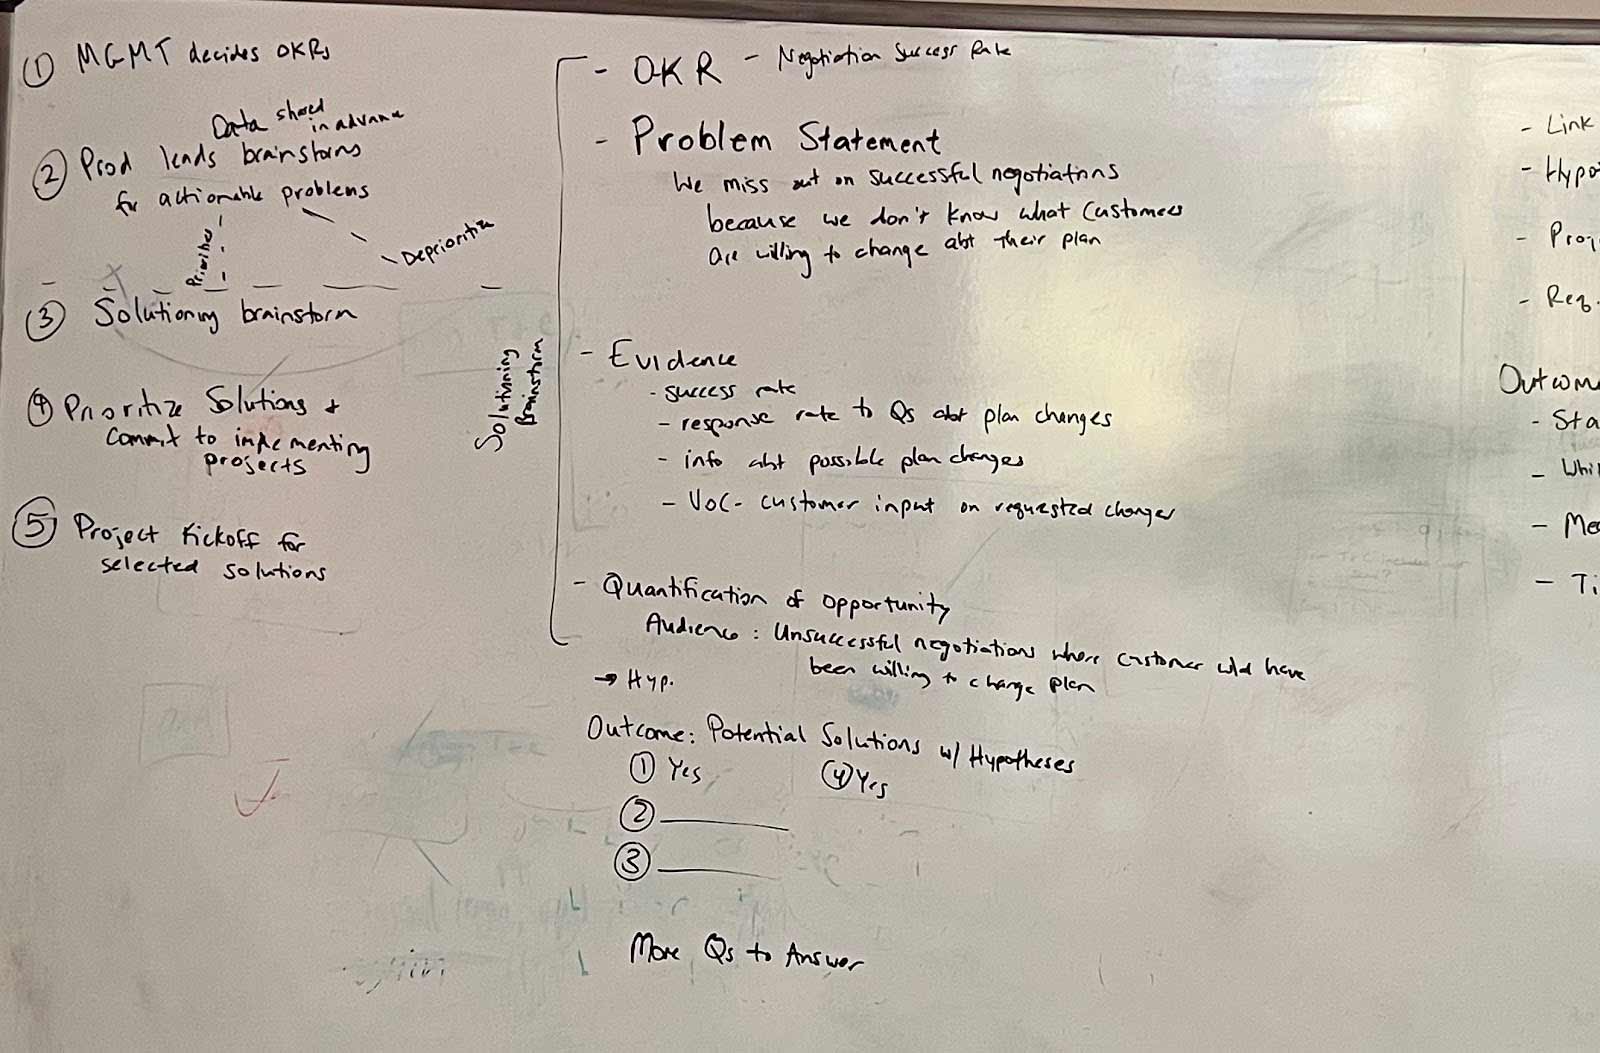 ① MGMT decides OKRs
Data shared
in advance
② Prod leads brainstorms
for actionable problems
Prioritize
Deprioritize
③ Solutioning brainstorm
④ Prioritize Solutions +
commit to implementing
projects
⑤ Project Kickoff for
selected solutions
Solutionning
Brainstorm
- OKR - Negotiation Success Rate
- Problem Statement
We miss out on successful negotiations
because we don't know what customers
are willing to change abt their plan
- Evidence
- success rate
- response rate to Qs abt plan changes
- info abt possible plan changes
- VoC - customer input on requested changes
- Quantification of opportunity
Audience: Unsuccessful negotiations where customer wld have
been willing to change plan
→ Hyp.
Outcome: Potential Solutions w/ Hypotheses
① Yes ④ Yes
②
③
More Qs to Answer
- Link
- Hypo
- Proj
- Req.
Outcom
- Sta
- Whi
- Me
- Ti